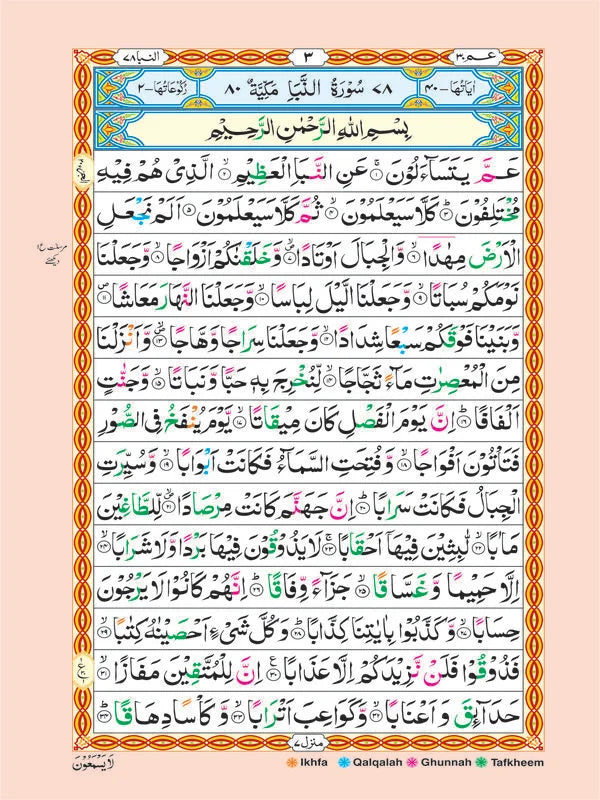 عـمّ ۳۰ ۳ النبا ۷۸
اٰیَاتُهَا-۴۰ ۷۸ سُوْرَةُ النَّبَاِ مَكِّيَّةٌ ۸۰ رُكُوْعَاتُهَا-۲
بِسْمِ اللّٰهِ الرَّحْمٰنِ الرَّحِيْمِ
عَمَّ يَتَسَآءَلُوْنَ ۝۱ عَنِ النَّبَاِ الْعَظِيْمِ ۝۲ الَّذِىْ هُمْ فِيْهِ
مُخْتَلِفُوْنَ ۝۳ كَلَّا سَيَعْلَمُوْنَ ۝۴ ثُمَّ كَلَّا سَيَعْلَمُوْنَ ۝۵ اَلَمْ نَجْعَلِ
الْاَرْضَ مِهٰدًا ۝۶ وَّالْجِبَالَ اَوْتَادًا ۝۷ وَّخَلَقْنٰكُمْ اَزْوَاجًا ۝۸ وَّجَعَلْنَا
نَوْمَكُمْ سُبَاتًا ۝۹ وَّجَعَلْنَا الَّيْلَ لِبَاسًا ۝۱۰ وَّجَعَلْنَا النَّهَارَ مَعَاشًا ۝۱۱
وَّبَنَيْنَا فَوْقَكُمْ سَبْعًا شِدَادًا ۝۱۲ وَّجَعَلْنَا سِرَاجًا وَّهَّاجًا ۝۱۳ وَّاَنْزَلْنَا
مِنَ الْمُعْصِرٰتِ مَآءً ثَجَّاجًا ۝۱۴ لِّنُخْرِجَ بِهٖ حَبًّا وَّنَبَاتًا ۝۱۵ وَّجَنّٰتٍ
اَلْفَافًا ۝۱۶ اِنَّ يَوْمَ الْفَصْلِ كَانَ مِيْقَاتًا ۝۱۷ يَّوْمَ يُنْفَخُ فِى الصُّوْرِ
فَتَاْتُوْنَ اَفْوَاجًا ۝۱۸ وَّفُتِحَتِ السَّمَآءُ فَكَانَتْ اَبْوَابًا ۝۱۹ وَّسُيِّرَتِ
الْجِبَالُ فَكَانَتْ سَرَابًا ۝۲۰ اِنَّ جَهَنَّمَ كَانَتْ مِرْصَادًا ۝۲۱ لِّلطَّاغِيْنَ
مَاٰبًا ۝۲۲ لّٰبِثِيْنَ فِيْهَا اَحْقَابًا ۝۲۳ لَا يَذُوْقُوْنَ فِيْهَا بَرْدًا وَّلَا شَرَابًا ۝۲۴
اِلَّا حَمِيْمًا وَّغَسَّاقًا ۝۲۵ جَزَآءً وِّفَاقًا ۝۲۶ اِنَّهُمْ كَانُوْا لَا يَرْجُوْنَ
حِسَابًا ۝۲۷ وَّكَذَّبُوْا بِاٰيٰتِنَا كِذَّابًا ۝۲۸ وَكُلَّ شَىْءٍ اَحْصَيْنٰهُ كِتٰبًا ۝۲۹
فَذُوْقُوْا فَلَنْ نَّزِيْدَكُمْ اِلَّا عَذَابًا ۝۳۰ اِنَّ لِلْمُتَّقِيْنَ مَفَازًا ۝۳۱
حَدَآئِقَ وَاَعْنَابًا ۝۳۲ وَّكَوَاعِبَ اَتْرَابًا ۝۳۳ وَّكَاْسًا دِهَاقًا ۝۳۴
منزل ۷
لَا يَسْمَعُوْنَ
Ikhfa Qalqalah Ghunnah Tafkheem